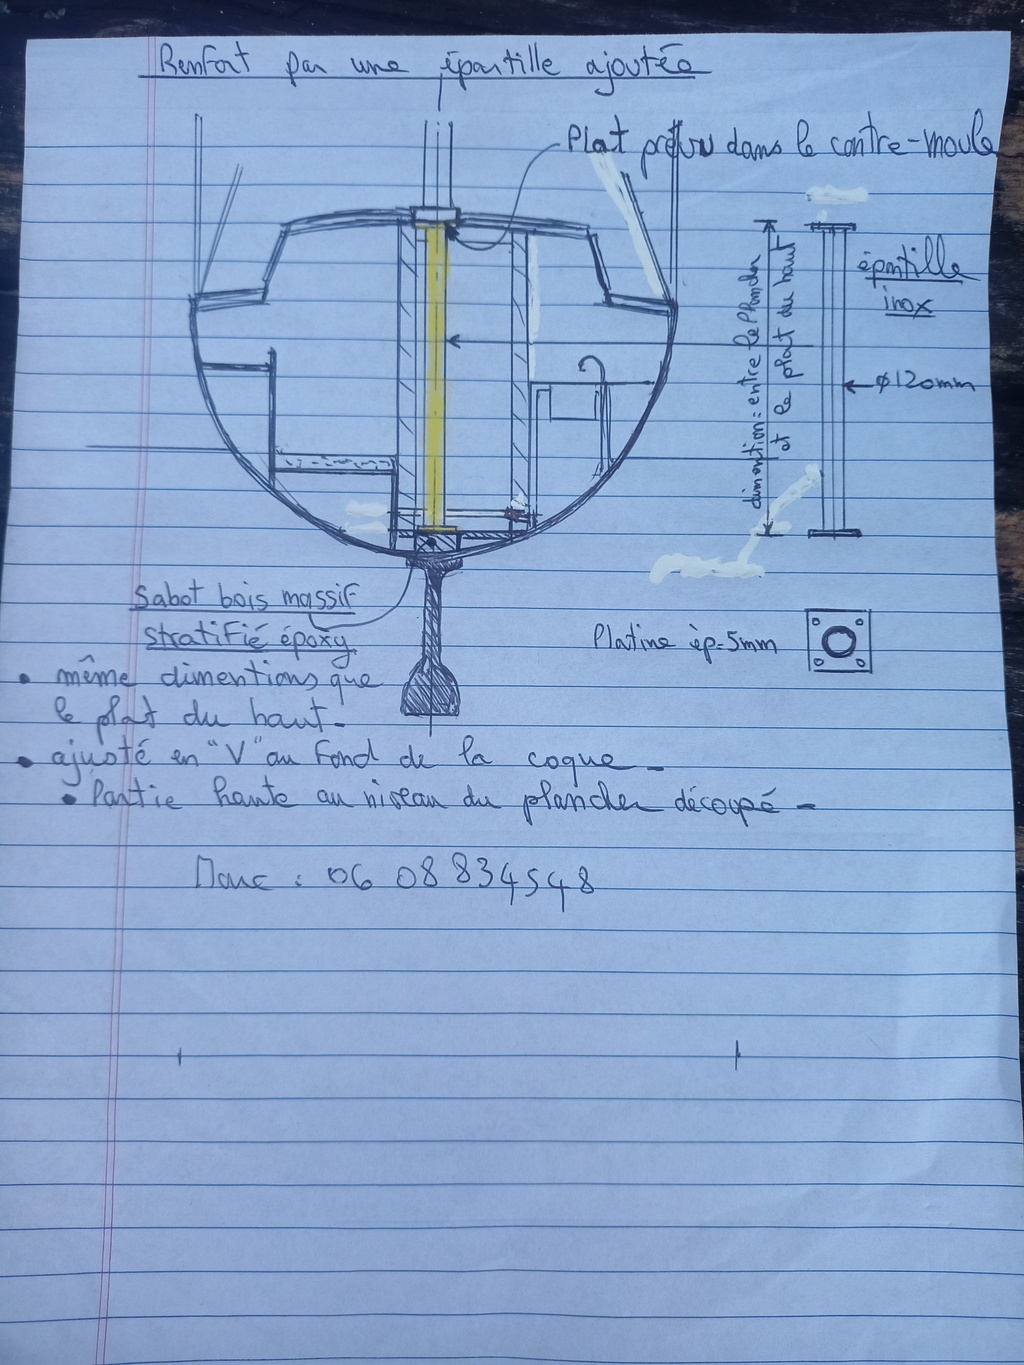 Renfort par une épartille ajoutée
Plat prévu dans le contre-moule
épartille
inox
dimention: entre le Plancher
et le plat du haut
φ120mm
Sabot bois massif
stratifié époxy
Platine ép=5mm
• même dimentions que
le plat du haut-
• ajusté en "V" au fond de la coque-
• Partie haute au niveau du plancher découpé-
Marc : 06 08 83 45 48